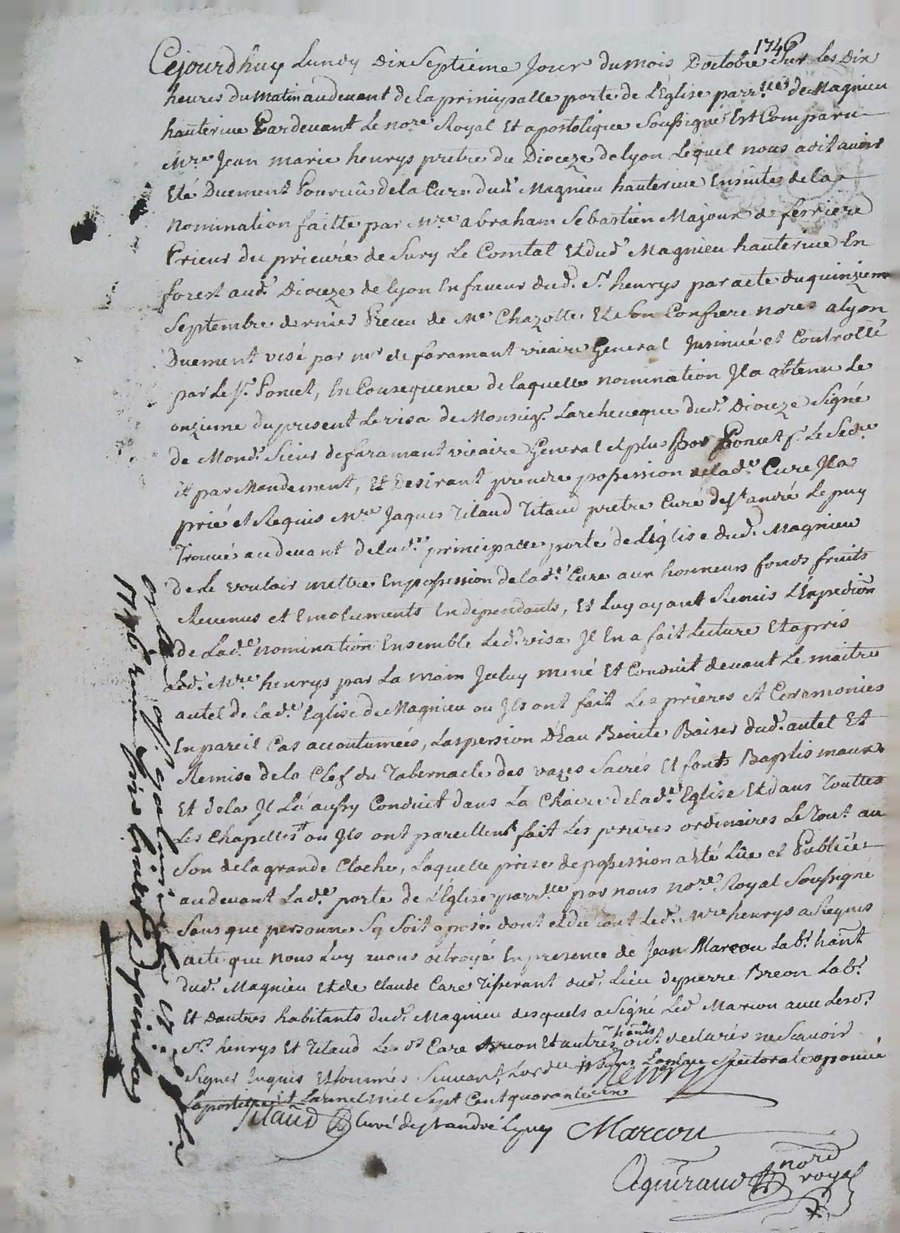 1746
Cejourdhuy Lundy Dix Septieme Jour du mois Doctobre Sur Les Dix
heures du Matin audevant de la principalle porte de L'Eglise parr.lle de Magnieu
hauterive Pardevant Le no.re Royal Et apostolique Soussigné Est Comparu
M.re Jean marie henrys pretre du Dioceze de Lyon Lequel nous adit avoir
Eté Duement Pourvû de la Cure dud. Magnieu hauterive Ensuitte de la
Nomination faitte par M.re abraham Sebastien Majour de ferriere
Prieur du prieuré de Sury Le Comtal Et dud. Magnieu hauterive En
forest aud. Dioceze de Lyon En faveur dud. S.r henrys par acte du quinzieme
Septembre dernier Receu de M.e Chazotte Et Son Confrere no.res a Lyon
Duement visé par m.r de faramant vicaire General Jnsinué et Controllé
par Le S.r Poncet, En Consequence de laquelle nomination Jl a obtenu Le
onzieme du present Le visa de Monseig.r Larcheveque dud. Dioceze Signé
de Mond. Sieur de faramant vicaire General et plus Bas Poncet Le Secr.e
et par Mandement, Et Desirant prendre possession de lad.e Cure Jl a
prié et Requis M.re Jaques Titaud pretre Curé de S.t andré Le puy
Trouvé audevant de lad.e principalle porte de L'Eglise dud. Magnieu
de Le vouloir mettre En possession de lad.e Cure aux honneurs fonds fruits
Revenus et Emoluments En dependants, Et Luy ayant Remis L'Expedition
de Lad.e nomination Ensemble Led. visa Jl En a fait Lecture Et apris
Led. M.re henrys par La main Jceluy mené Et Conduit devant Le maitre
autel de Lad.e Eglise de Magnieu ou Jls ont fait Les prieres et Ceremonies
En pareil Cas accoutumées, Laspersion D'Eau Benite Baiser dud. autel Et
Remise de la Clef du Tabernacle des vazes Sacrés Et fonts Baptismaux
Et de la Jl La aussy Conduit dans La Chaire de lad.e Eglise Et dans Touttes
Les Chapelles ou Jls ont pareillem.t fait Les prieres ordinaires Le Tout au
Son de la grande Cloche, Laquelle prise de possession a Eté Lüe et Publiée
audevant Lad.e porte de L'Eglise parr.lle par nous no.re Royal Soussigné
Sans que personne S'y Soit oposé dont et du tout Led. M.re henrys a Requis
acte que nous Luy avons octroyé En presence de Jean Marcou Lab.r ha.nt
dud. Magnieu Et de Claude Care Tisserant dud. Lieu de pierre Breon Lab.r
Et Dautres habitants dud. Magnieu desquels a Signé Led. Marcou avec Lesd.
S.rs henrys Et Titaud Les d. Care Breon Et autres ha.nts ont declarés ne Scavoir
Signer Enquis Et Sommés Suivant Lord.ce
Lan mil Sept Cent quarante six
henrys
Titaud Curé de St andré Le puy Marcou
no.re royal